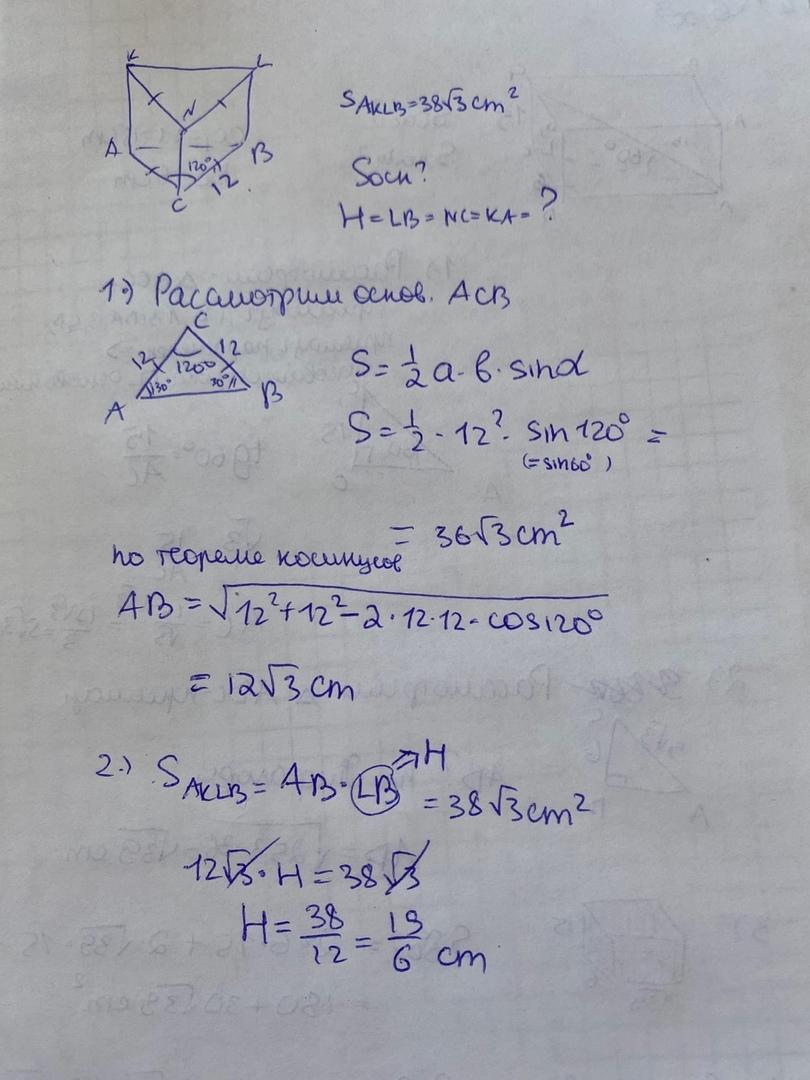 K L
N
A B
120°
12
C
S AKLB = 38√3 cm²
Sосн?
H = LB = NC = KA = ?
1.) Рассмотрим основ. ACB
C
12 12
120°
30° 30°
A B
S = 1/2 a · b · sinα
S = 1/2 · 12² · sin 120° =
(= sin60°)
= 36√3 cm²
по теореме косинусов
AB = √12² + 12² - 2 · 12 · 12 · cos120°
= 12√3 cm
2.) S AKLB = AB · LB = 38√3 cm²
H
12√3 · H = 38√3
H = 38/12 = 19/6 cm